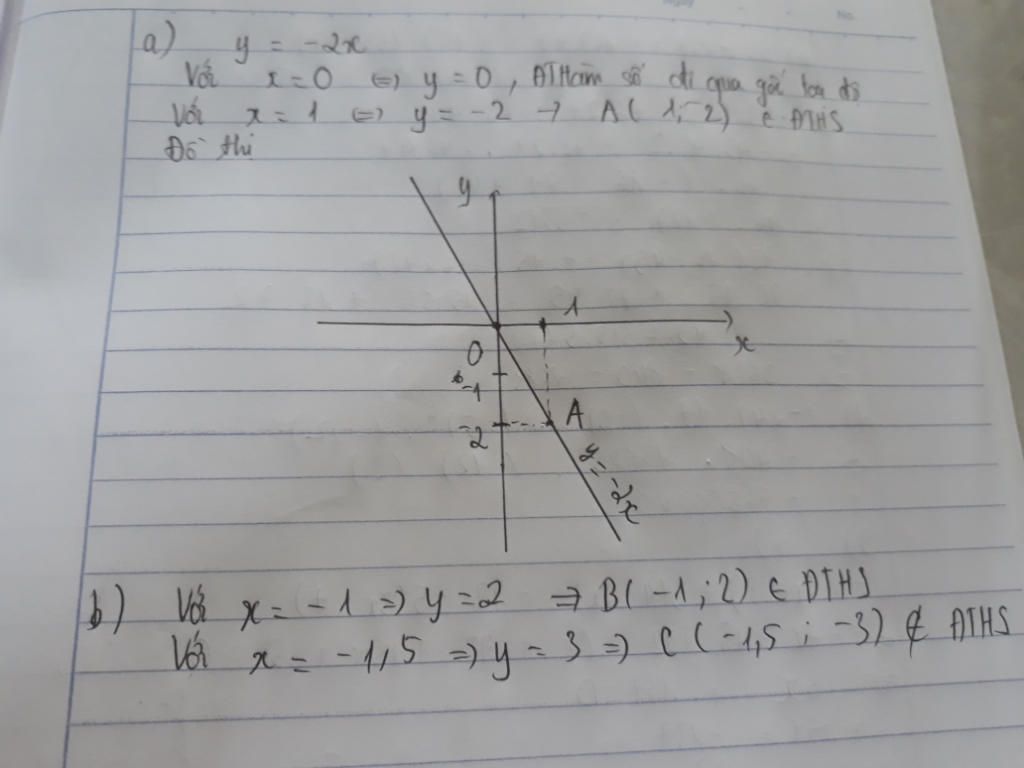 a) y = -2x
Với x = 0 <=> y = 0, ĐTHàm số đi qua gốc toạ độ
Với x = 1 <=> y = -2 → A( 1; -2) ∈ ĐTHS
Đồ thị
y
1
x
O
-1
A
-2
y = -2x
b) Với x = -1 => y = 2 => B( -1 ; 2) ∈ ĐTHS
Với x = -1,5 => y = 3 => C ( -1,5 ; -3) ∉ ĐTHS